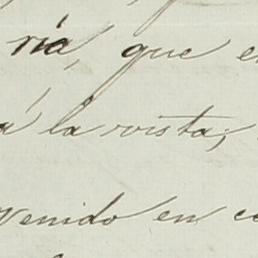 ria, que e
á la vista;
venido en c